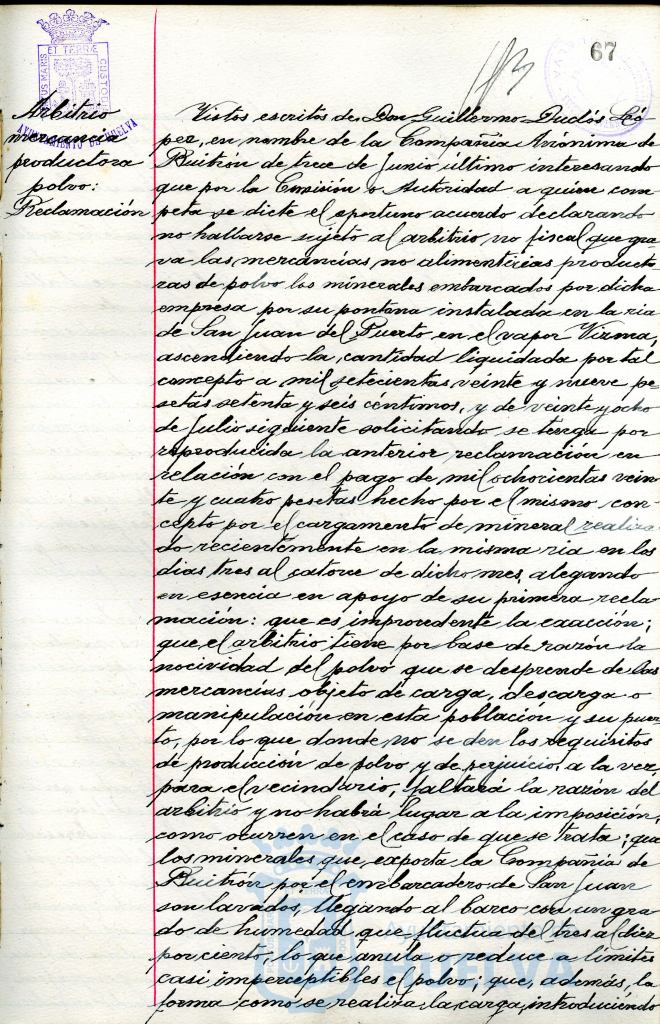 67
ET TERRÆ
CUSTODIA
AYUNTAMIENTO DE HUELVA
Arbitrio
mercancía
productora
polvo:
Reclamación
Vistos escritos de Don Guillermo Duclós Ló-
pez, en nombre de la Compañía Anónima de
Buitrón de trece de Junio último interesando
que por la Comisión o Autoridad a quien com
peta se dicte el oportuno acuerdo declarando
no hallarse sujeto al arbitrio no fiscal que gra
va las mercancías no alimenticias producto
ras de polvo los minerales embarcados por dicha
empresa por su pontana instalada en la ria
de San Juan del Puerto en el vapor Virma,
ascendiendo la cantidad liquidada por tal
concepto a mil setecientas veinte y nueve pe
setas setenta y seis céntimos, y de veinte y ocho
de Julio siguiente solicitando se tenga por
reproducida la anterior reclamación en
relación con el pago de mil ochocientas vein
te y cuatro pesetas hecho por el mismo con-
cepto por el cargamento de mineral realiza-
do recientemente en la misma ria en los
dias tres al catorce de dicho mes, alegando
en esencia en apoyo de su primera recla
mación: que es improcedente la exacción;
que el arbitrio tiene por base de razón la
nocividad del polvo que se desprende de las
mercancías objeto de carga, descarga o
manipulación en esta población y su puer
to, por lo que donde no se den los requisitos
de producción de polvo y de perjuicio, a la vez,
para el vecindario, faltará la razón del
arbitrio y no habrá lugar a la imposición,
como ocurren en el caso de que se trata; que
los minerales que exporta la Compañía de
Buitrón por el embarcadero de San Juan
son lavados, llegando al barco con un gra
do de humedad que fluctua del tres al diez
por ciento, lo que anula o reduce a límites
casi imperceptibles el polvo; que, además, la
forma como se realiza la carga, introduciendo
Ayuntamiento de
HUELVA